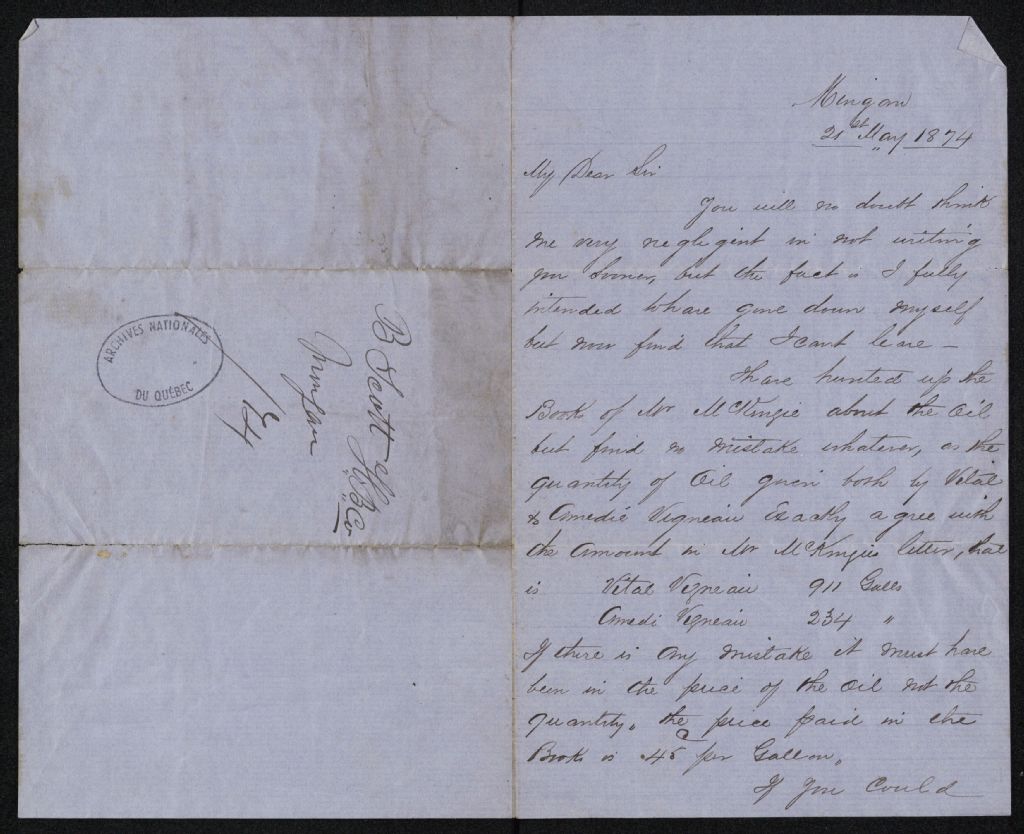 ARCHIVES NATIONALES
DU QUÉBEC
B Scott H.B.Co
Mingan
/74
Mingan
21st May 1874
My Dear Sir
You will no doubt think
me very negligint in not writing
you sooner, but the fact is I fully
intended to have gone down myself
but now find that I cant leave -
I have hunted up the
Book of Mr McKinzie about the Oil
but find no mistake whatever, as the
quantity of Oil given both by Vital
& Amedie Vigneau Exactly agree with
the Amount in Mr McKinzies letter, that
is Vital Vigneau 911 Galls
Amedi Vigneau 234 "
If there is any mistake it must have
been in the price of the Oil not the
quantity. the price paid in the
Book is 45c per Gallon.
If you Could